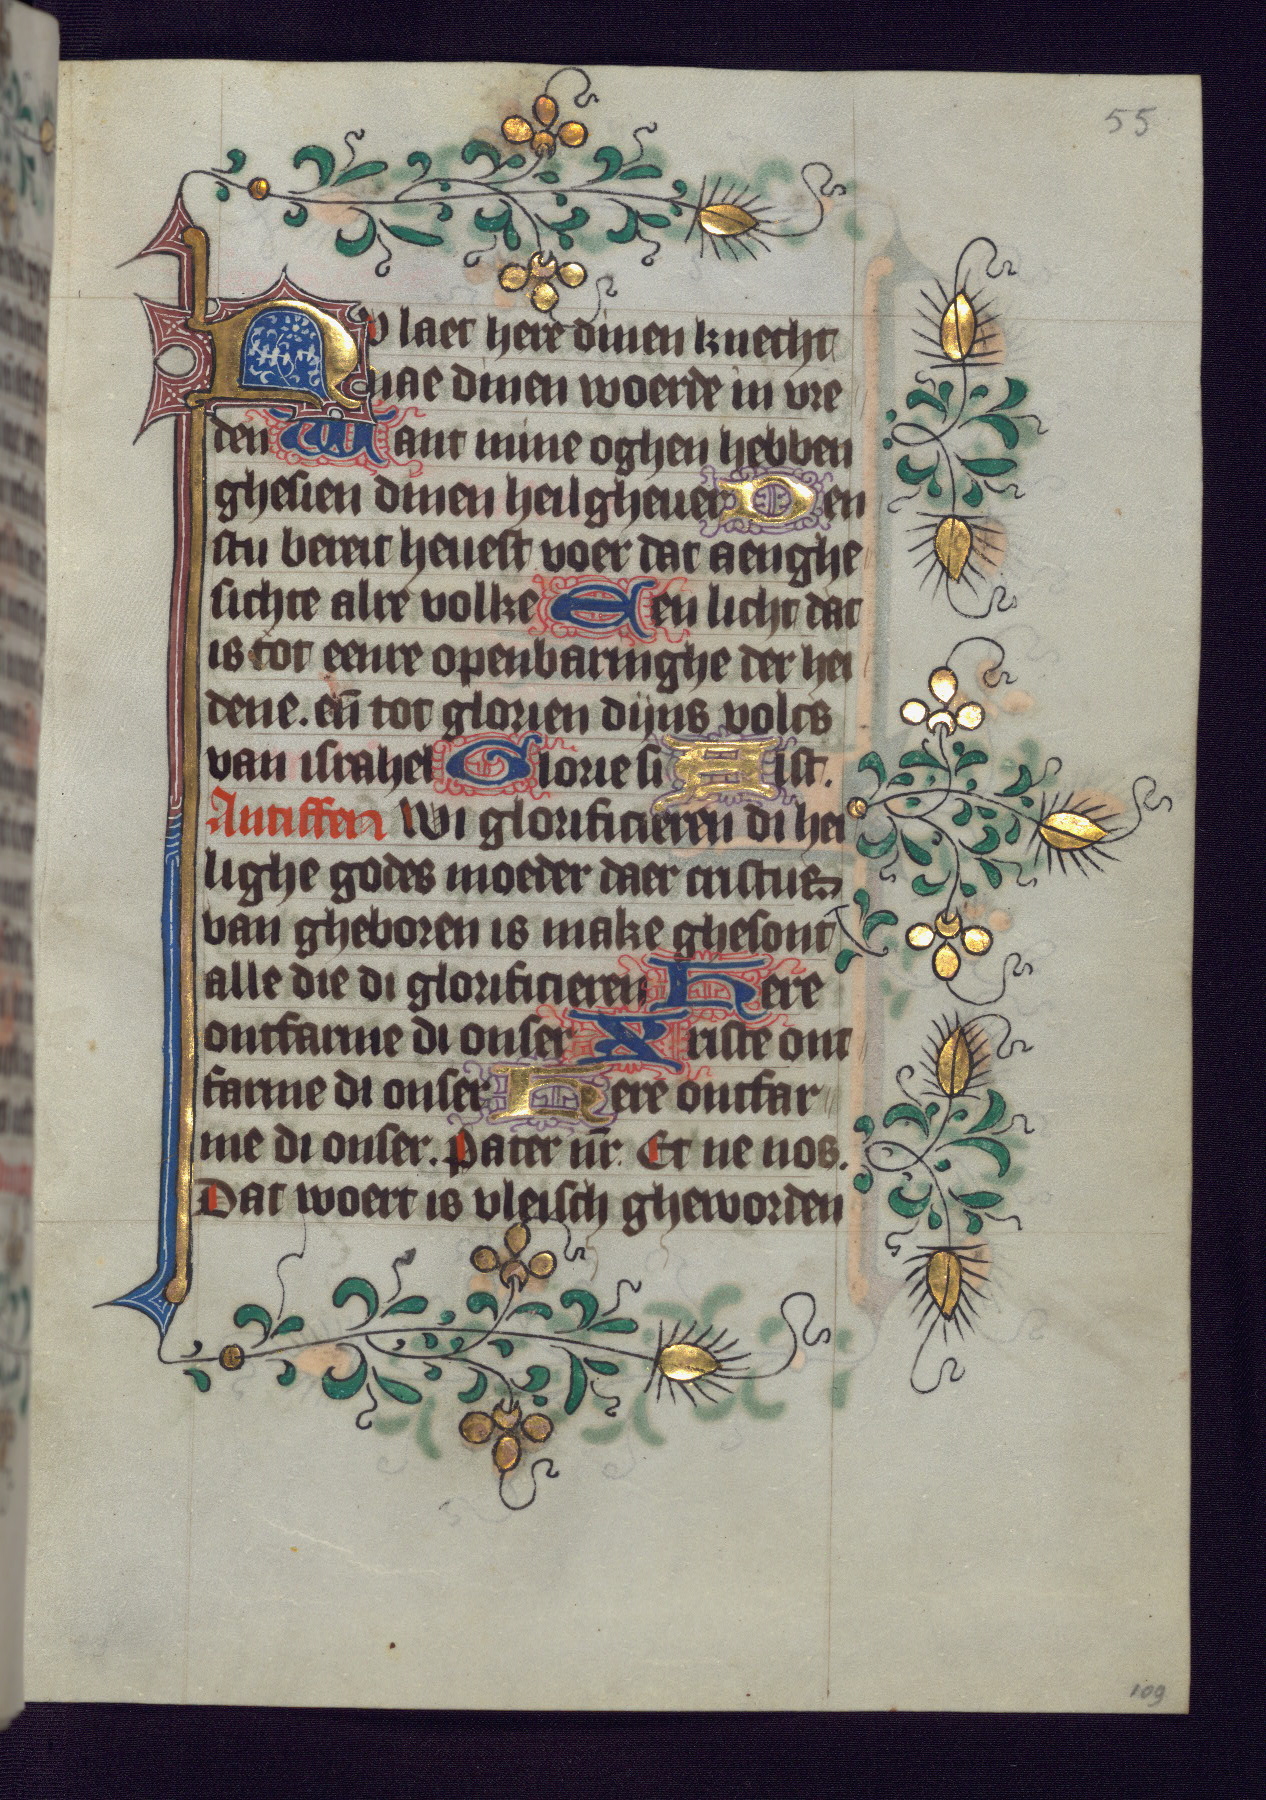 55
Nv laet here dinen knecht
nae dinen woerde in vre
den Want mine oghen hebben
ghesien dinen heilgheuer Den
stu bereit heuest voer dat aenghe
sichte alre volke Een licht dat
is tot eenre openbaringhe der hei
dene. en̄ tot glorien dijns volcs
van israhel Glorie si Alst.
Antiffen Wi glorificieren di hei
lighe godes moeder daer cristus
van gheboren is make ghesont
alle die di glorificieren Here
ontfarme di onser Xriste ont
farme di onser Here ontfar
me di onser. Pater nr̄. Et ne nos.
Dat woert is vleisch gheworden
109